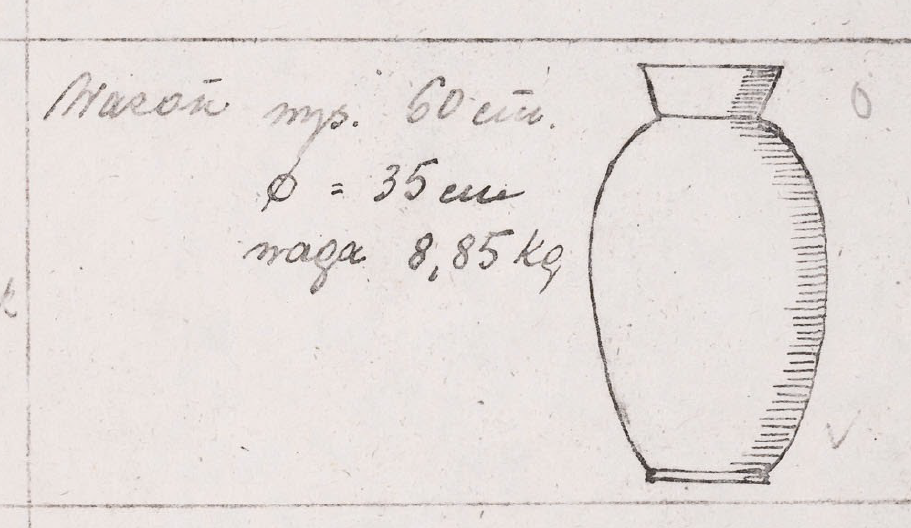 Wazon wys. 60 cm.
ϕ = 35 cm
waga 8,85 kg